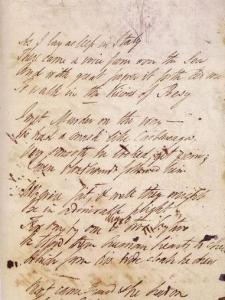 As I lay asleep in Italy
There came a voice from over the Sea
And with great power it forth led me
To walk in the Visions of Poesy
I met Murder on the way —
He had a mask like Castlereagh
Very smooth he looked, yet grim;
Seven bloodhounds followed him
All were fat, & well they might
be in admirable plight
For one by one & two by two
He tossed them human hearts to chew
Which from his wide cloak he drew
Next came Fraud he had on